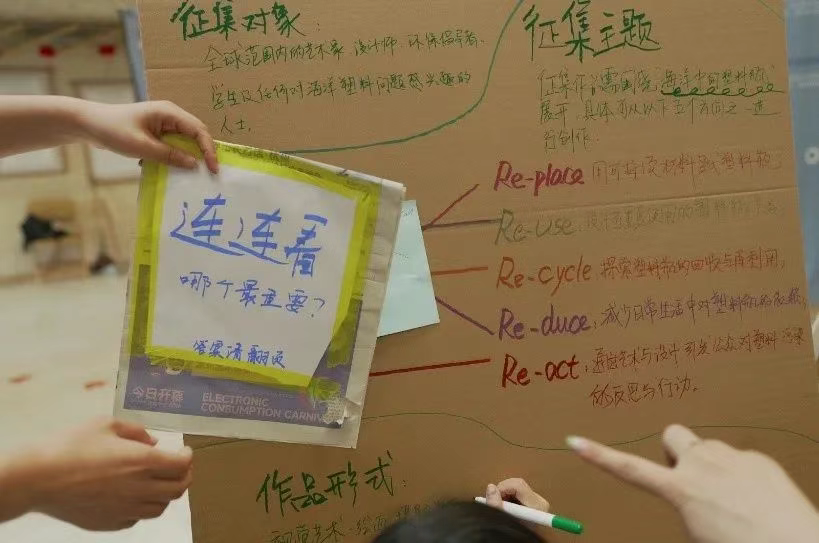 征集对象:
全球范围内的艺术家、设计师、环保倡导者、
学生及任何对海洋塑料问题感兴趣的
人士。
征集主题
征集作品需围绕"海洋中的塑料瓶"
展开,具体可从以下五个方向之一进
行创作:
Re-place 用可持续材料取代塑料瓶
Re-use
Re-cycle,探索塑料瓶的回收与再利用,
Re-duce,减少日常生活中对塑料瓶的依赖,
Re-act,通过艺术与设计引发公众对塑料污染
的反思与行动。
连连看
哪个最重要?
答案请翻页
今日开幕
ELECTRONIC
CONSUMPTION CARNIV
作品形式:
视觉艺术:绘画